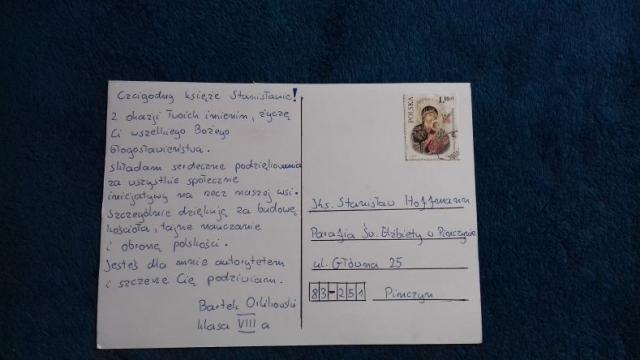 Czcigodny księże Stanisławie!
Z okazji Twoich imienin, życzę
Ci wszelkiego Bożego
błogosławieństwa.
Składam serdeczne podziękowania
za wszystkie społeczne
inicjatywy na rzecz naszej wsi.
Szczególnie dziękuję za budowę
kościoła, tajne nauczanie
i obronę polskości.
Jesteś dla mnie autorytetem
i szczerze Cię podziwiam.
Bartek
klasa VIII a
POLSKA
Jks. Stanisław Hoffmann
Parafia Św. Elżbiety w Pinczynie
ul. Główna 25
83-251 Pinczyn